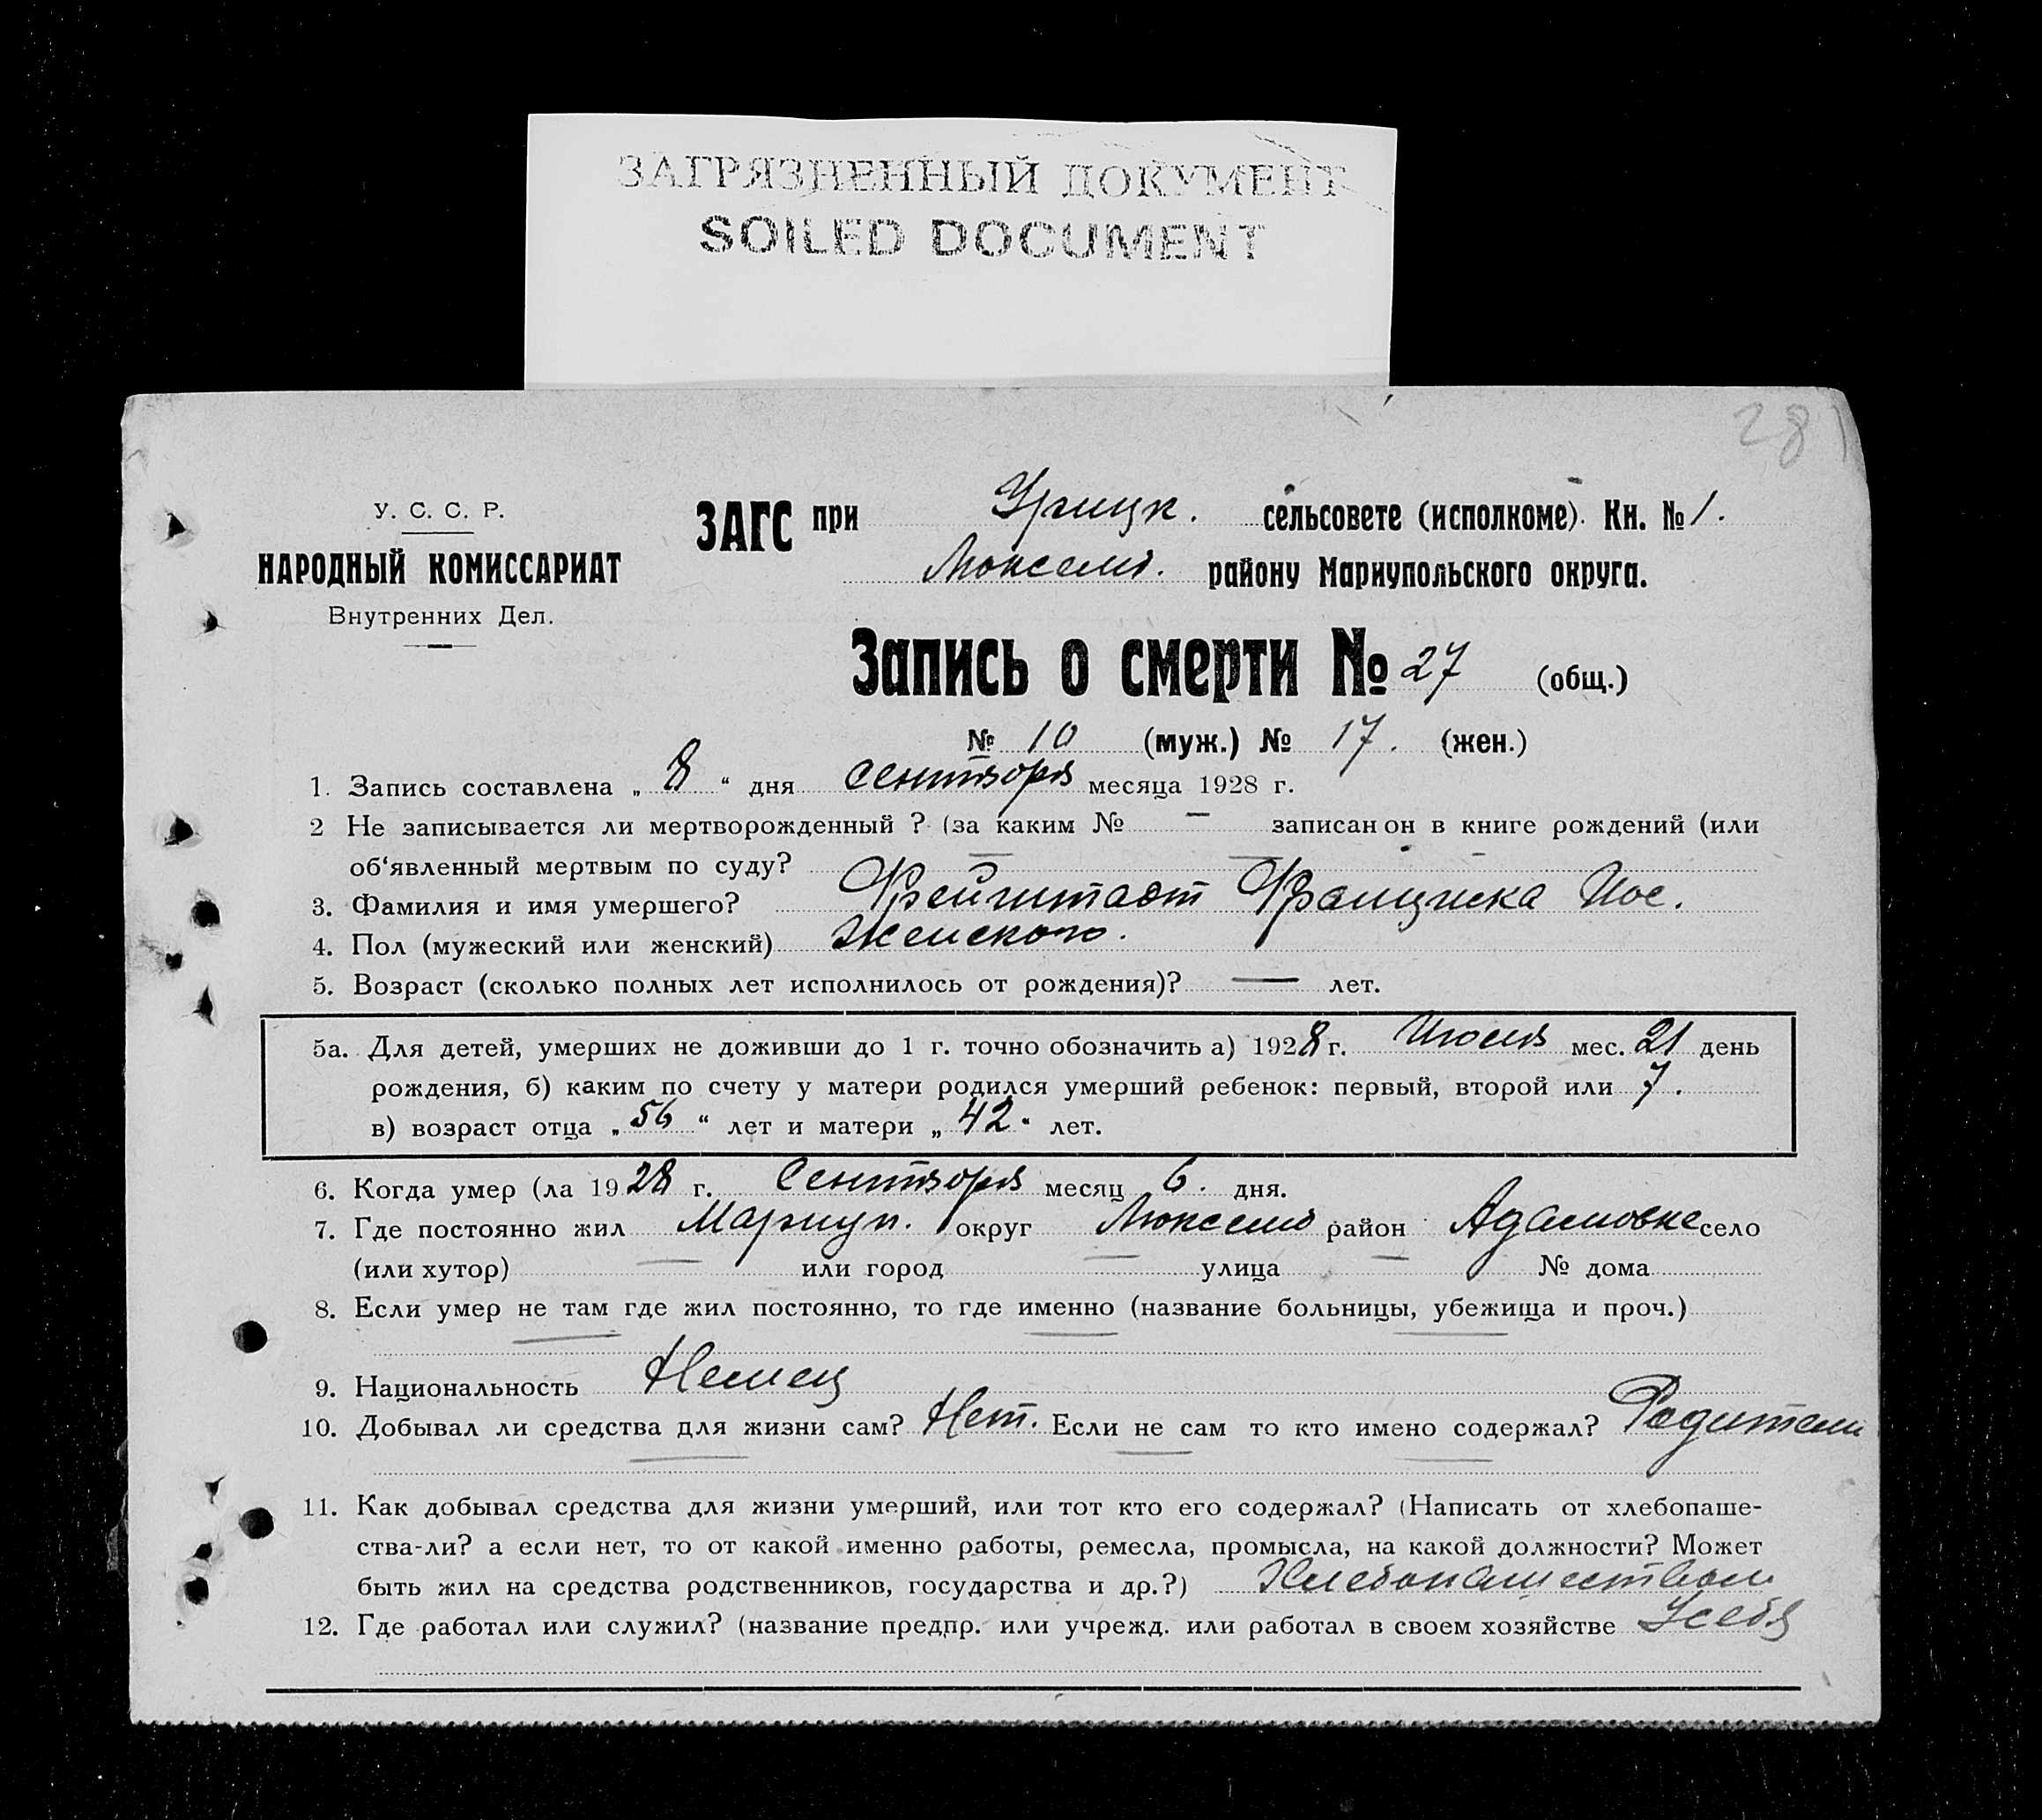 ЗАГРЯЗНЕННЫЙ ДОКУМЕНТ
SOILED DOCUMENT
281
У. С. С. Р.
НАРОДНЫЙ КОМИССАРИАТ
Внутренних Дел.
ЗАГС при Урицк. сельсовете (исполкоме). Кн. № 1.
Люксемб. району Мариупольского округа.
Запись о смерти № 27 (общ.)
№ 10 (муж.) № 17. (жен.)
1. Запись составлена „ 8 “ дня Сентября месяца 1928 г.
2 Не записывается ли мертворожденный ? (за каким № — записан он в книге рождений (или
об‘явленный мертвым по суду?
3. Фамилия и имя умершего? Франциска Иос.
4. Пол (мужеский или женский) Женского.
5. Возраст (сколько полных лет исполнилось от рождения)? — лет.
5а. Для детей, умерших не доживши до 1 г. точно обозначить а) 1928 г. мес. 21 день
рождения, б) каким по счету у матери родился умерший ребенок: первый, второй или 7.
в) возраст отца „ 56 “ лет и матери „ 42 “ лет.
6. Когда умер (ла 1928 г. Сентября месяц 6. дня.
7. Где постоянно жил Мариуп. округ Люксемб район Адамовке село
(или хутор) — или город — улица — № дома
8. Если умер не там где жил постоянно, то где именно (название больницы, убежища и проч.)
9. Национальность Немец
10. Добывал ли средства для жизни сам? Нет. Если не сам то кто имено содержал? Родители
11. Как добывал средства для жизни умерший, или тот кто его содержал? (Написать от хлебопаше-
ства-ли? а если нет, то от какой именно работы, ремесла, промысла, на какой должности? Может
быть жил на средства родственников, государства и др.?) Хлебопашеством
12. Где работал или служил? (название предпр. или учрежд. или работал в своем хозяйстве У себя